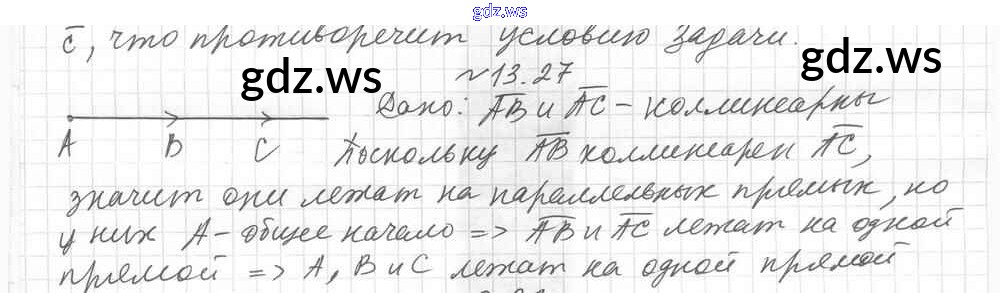 gdz.ws
c̅, что противоречит условию задачи.
gdz.ws
gdz.ws
~13.27
Дано: A̅B̅ и A̅C̅ - коллинеарны
A B C Поскольку A̅B̅ коллинеарен A̅C̅,
значит они лежат на параллельных прямых, но
у них A - общее начало => A̅B̅ и A̅C̅ лежат на одной
прямой => A, B и C лежат на одной прямой